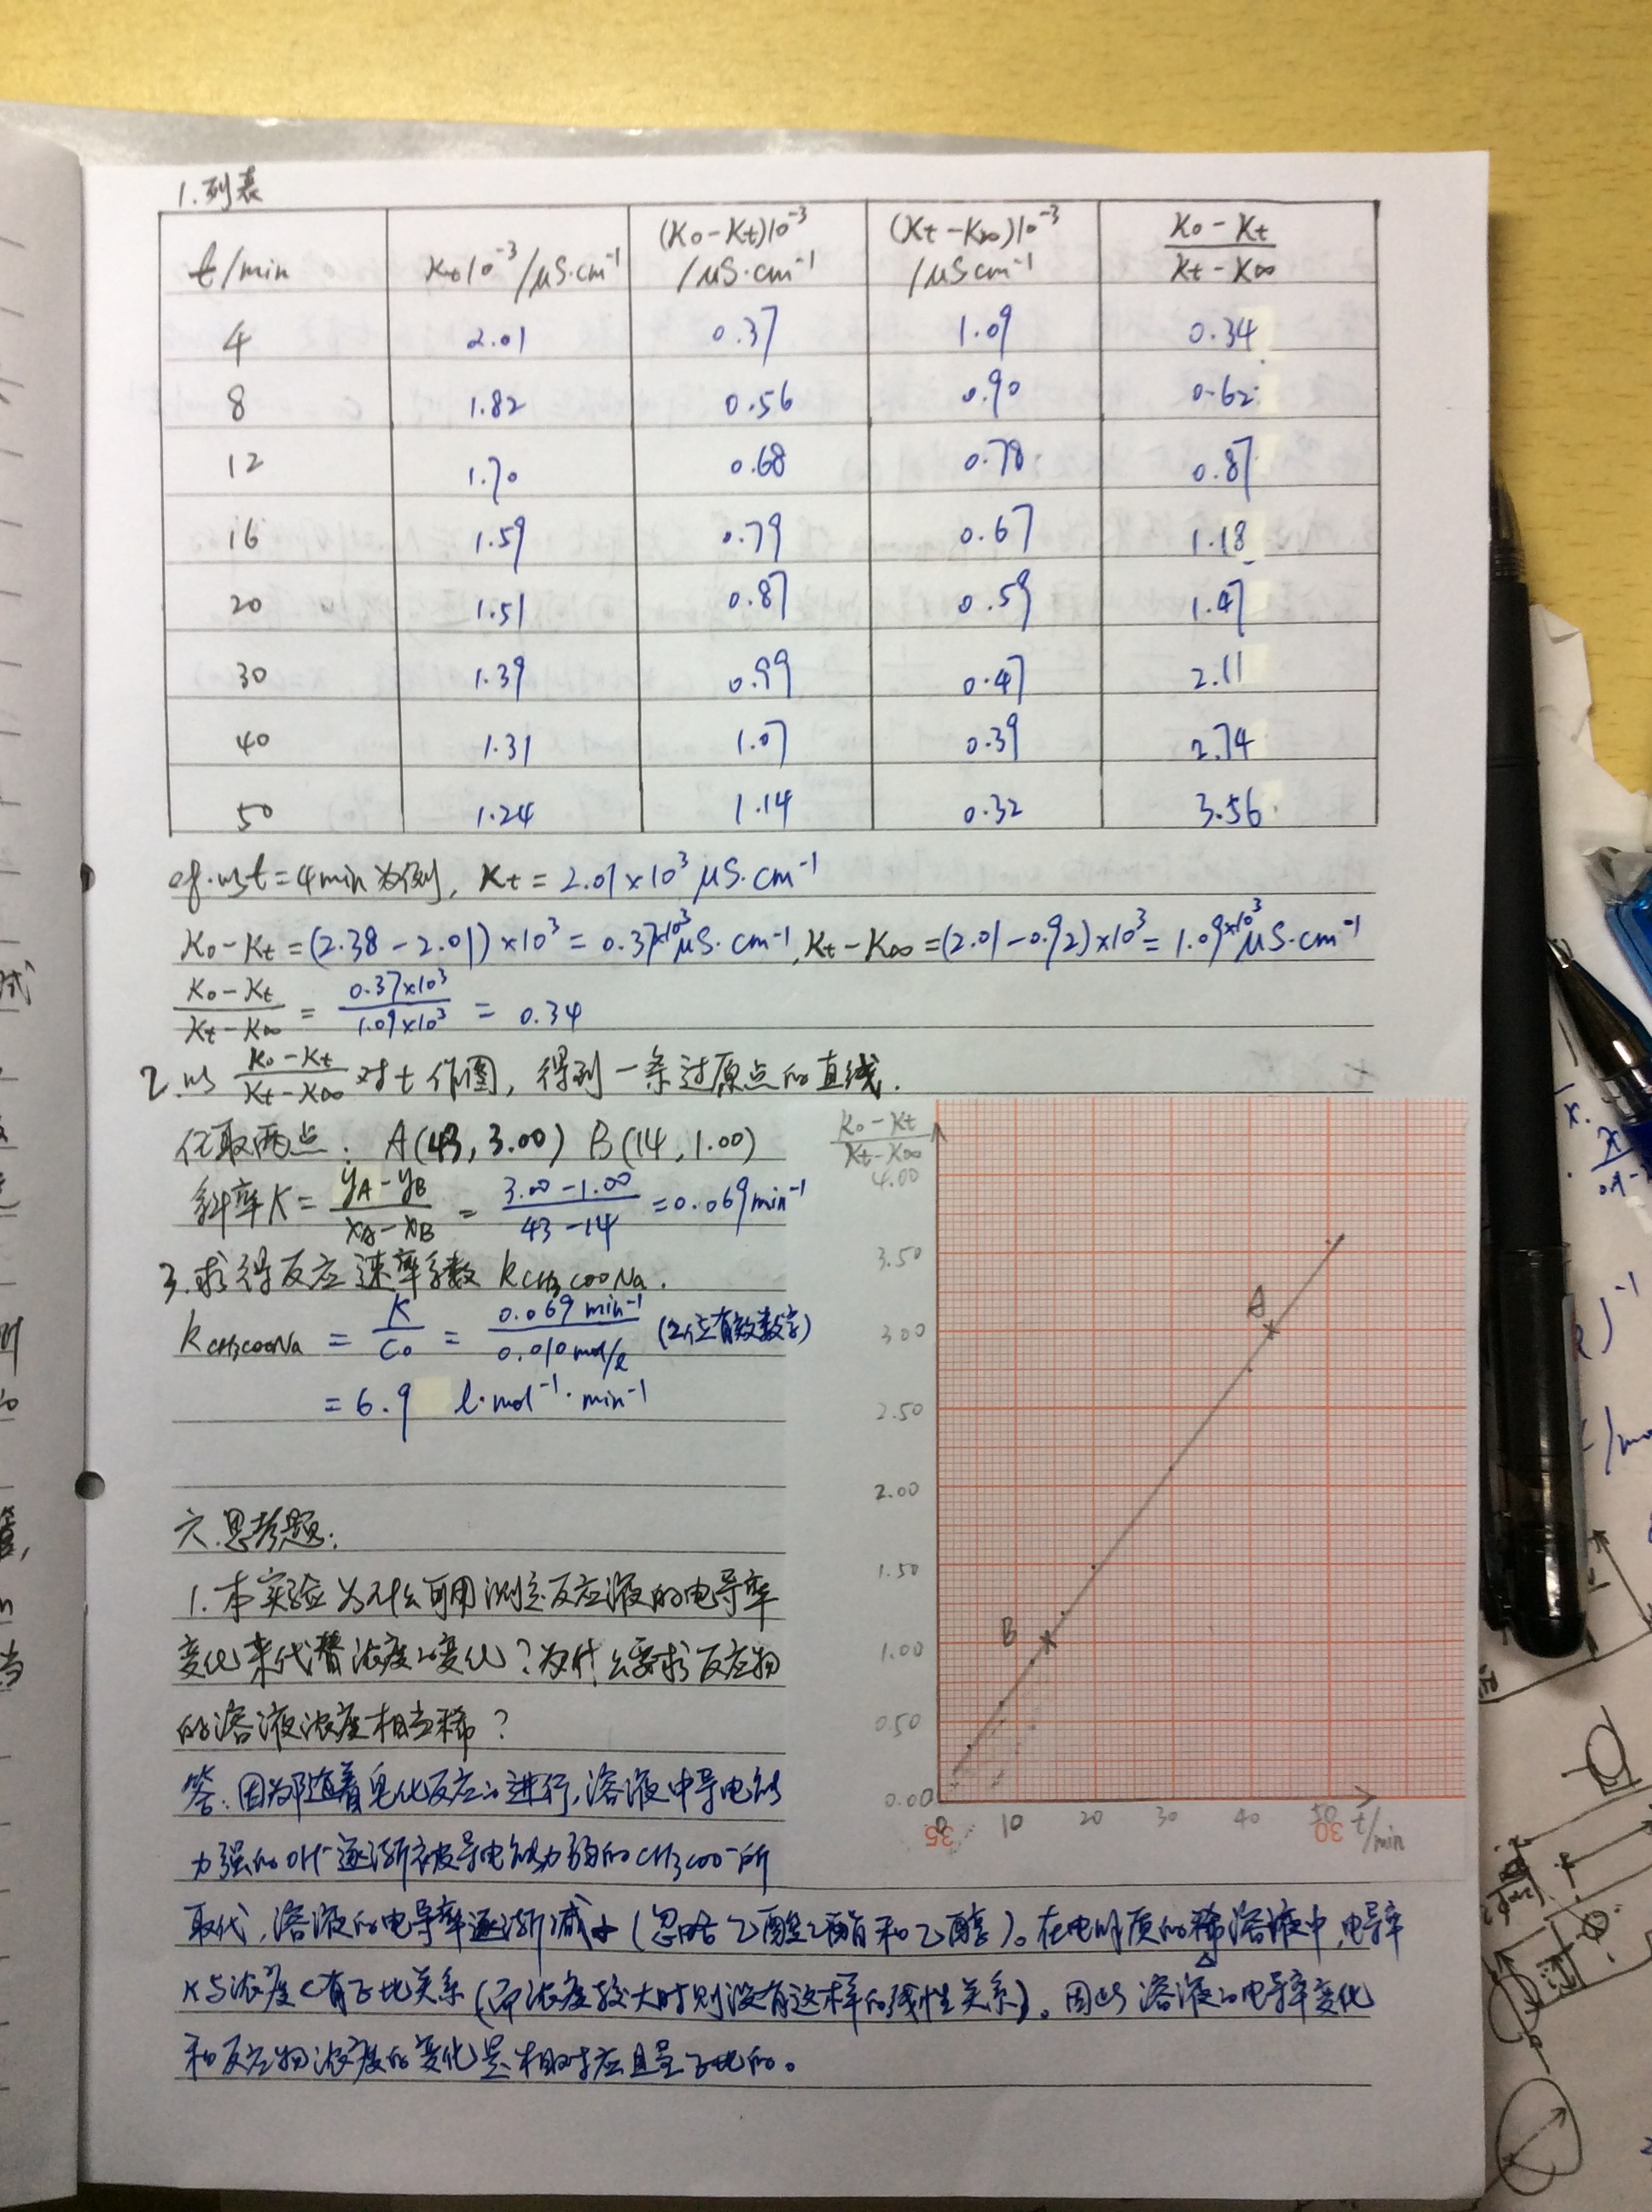 1.列表
t/min κt10⁻³/μS·cm⁻¹ (κ0-κt)10⁻³/μS·cm⁻¹ (κt-κ∞)10⁻³/μS cm⁻¹ (κ0-κt)/(κt-κ∞)
4 2.01 0.37 1.09 0.34
8 1.82 0.56 0.90 0.62
12 1.70 0.68 0.78 0.87
16 1.59 0.79 0.67 1.18
20 1.51 0.87 0.59 1.47
30 1.39 0.99 0.47 2.11
40 1.31 1.07 0.39 2.74
50 1.24 1.14 0.32 3.56
以t=4min为例, κt=2.01×10³μS·cm⁻¹
κ0-κt=(2.38-2.01)×10³=0.37×10³μS·cm⁻¹, κt-κ∞=(2.01-0.92)×10³=1.09×10³μS·cm⁻¹
(κ0-κt)/(κt-κ∞)=(0.37×10³)/(1.09×10³)=0.34
2.以(κ0-κt)/(κt-κ∞)对t作图,得到一条过原点的直线.
任取两点: A(43,3.00) B(14,1.00)
斜率K=(yA-yB)/(xA-xB)=(3.00-1.00)/(43-14)=0.069min⁻¹
3.求得反应速率系数kCH3COONa.
kCH3COONa=K/C0=(0.069min⁻¹)/(0.010mol/l)(2位有效数字)
=6.9 l·mol⁻¹·min⁻¹
(κ0-κt)/(κt-κ∞)
4.00
3.50
A
3.00
2.50
2.00
1.50
B
1.00
0.50
0.00
0 10 20 30 40 50 t/min
35 30
六.思考题:
1.本实验为什么可用测定反应液的电导率
变化来代替浓度的变化?为什么要求反应物
的溶液浓度相当稀?
答:因为随着皂化反应的进行,溶液中导电能
力强的OH⁻逐渐被导电能力弱的CH3COO⁻所
取代,溶液的电导率逐渐减小(忽略乙酸乙酯和乙醇)。在电解质的稀溶液中,电导率
κ与浓度c有正比关系(而浓度较大时则没有这样的线性关系)。因此溶液的电导率变化
和反应物浓度的变化是相对应且呈正比的。